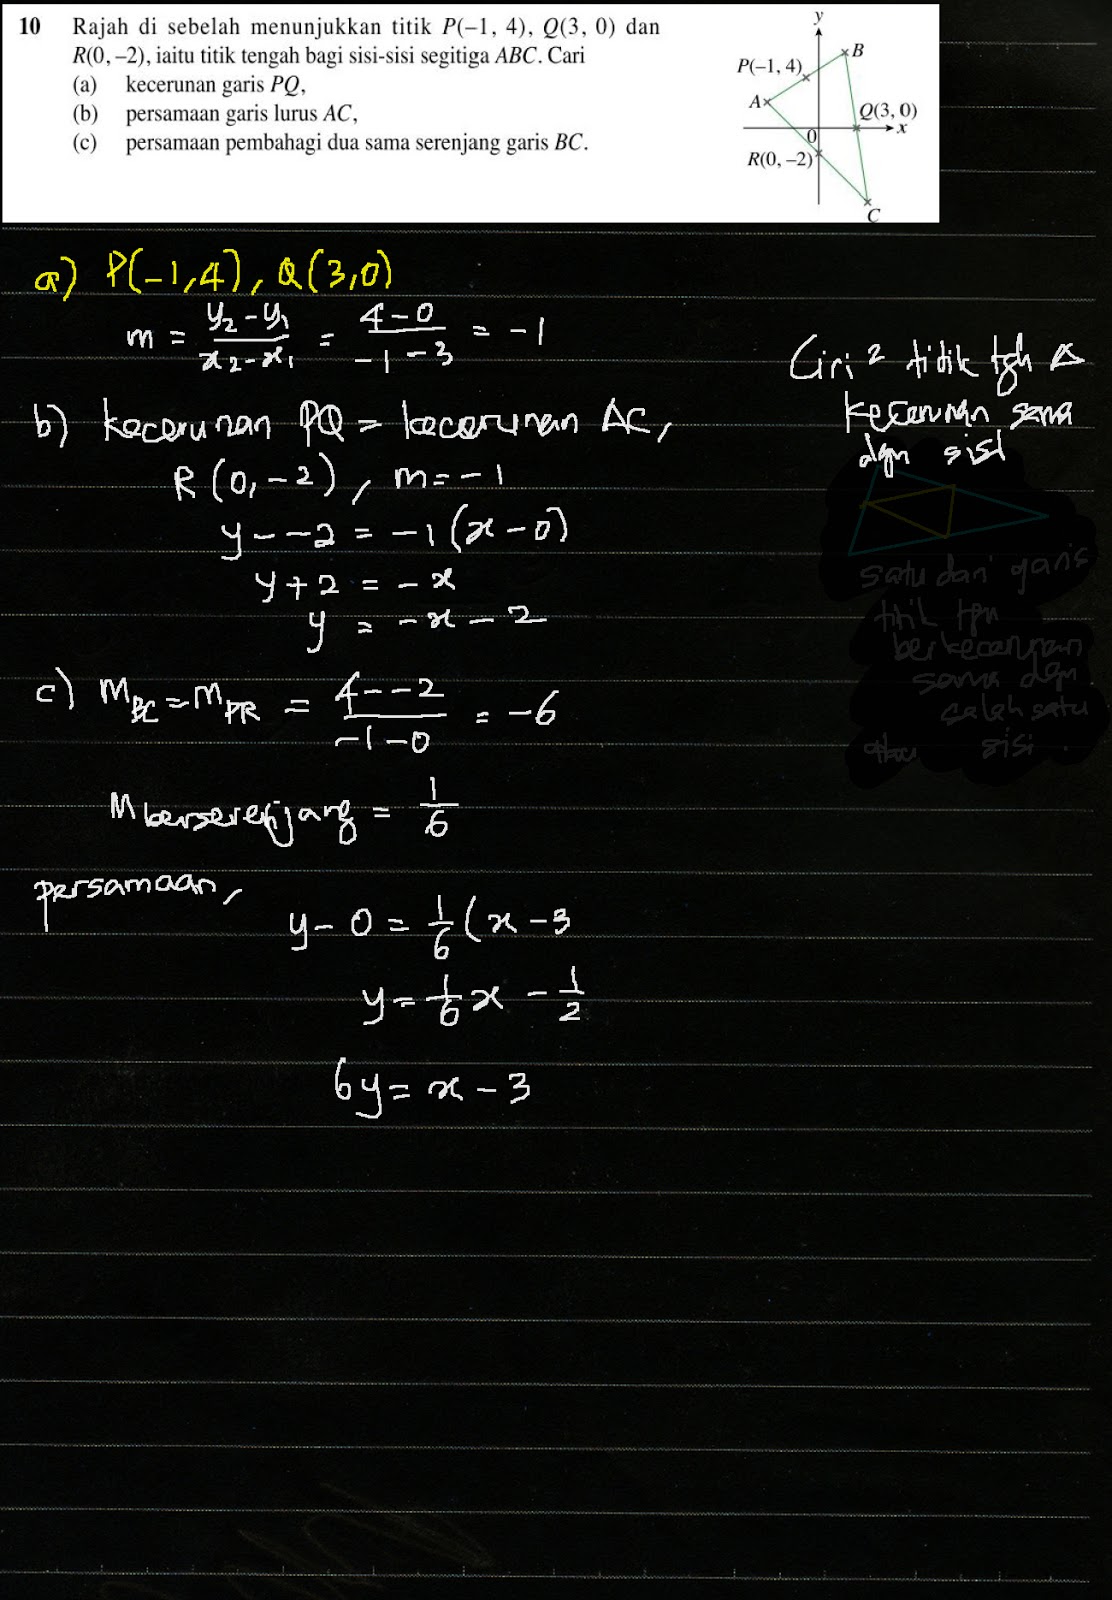 10 Rajah di sebelah menunjukkan titik P(–1, 4), Q(3, 0) dan
R(0, –2), iaitu titik tengah bagi sisi-sisi segitiga ABC. Cari
(a) kecerunan garis PQ,
(b) persamaan garis lurus AC,
(c) persamaan pembahagi dua sama serenjang garis BC.
y
B
P(–1, 4)
A
Q(3, 0)
0
x
R(0, –2)
C
a) P(-1,4), Q(3,0)
m = y₂-y₁/x₂-x₁ = 4-0/-1-3 = -1
Ciri² titik tgh Δ
kecerunan sama
dgn sisi
b) kecerunan PQ = kecerunan AC,
R(0,-2), m=-1
y--2 = -1(x-0)
y+2 = -x
y = -x-2
satu dari garis
titik tgh
berkecerunan
sama dgn
salah satu
sisi.
c) m_BC = m_PR = 4--2/-1-0 = -6
M berserenjang = 1/6
persamaan,
y-0 = 1/6(x-3
y = 1/6x - 1/2
6y = x-3